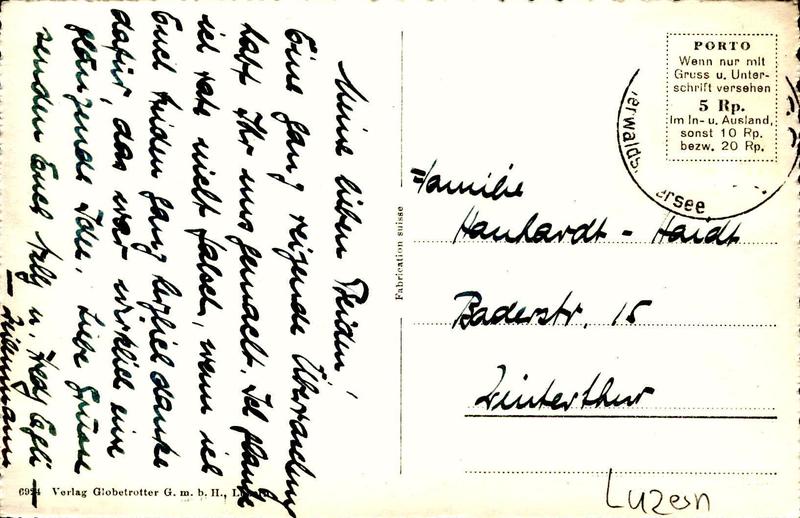 Meine lieben Beiden!
Eine ganz reizende Überraschung
habt Ihr uns gemacht. Ich glaube
ich rate nicht falsch, wenn ich
Euch beiden ganz herzlich danke
dafür, das war wirklich eine
glänzende Idee. Liebe Grüsse
senden Euch Nelly u. Fredy Egli -
6924 Verlag Globetrotter G. m. b. H.,
Fabrication suisse
PORTO
Wenn nur mit
Gruss u. Unter-
schrift versehen
5 Rp.
Im In- u. Ausland,
sonst 10 Rp.
bezw. 20 Rp.
erwalds
ersee
Familie
Hanhardt - Haidt
Baderstr. 15
Winterthur
Luzern